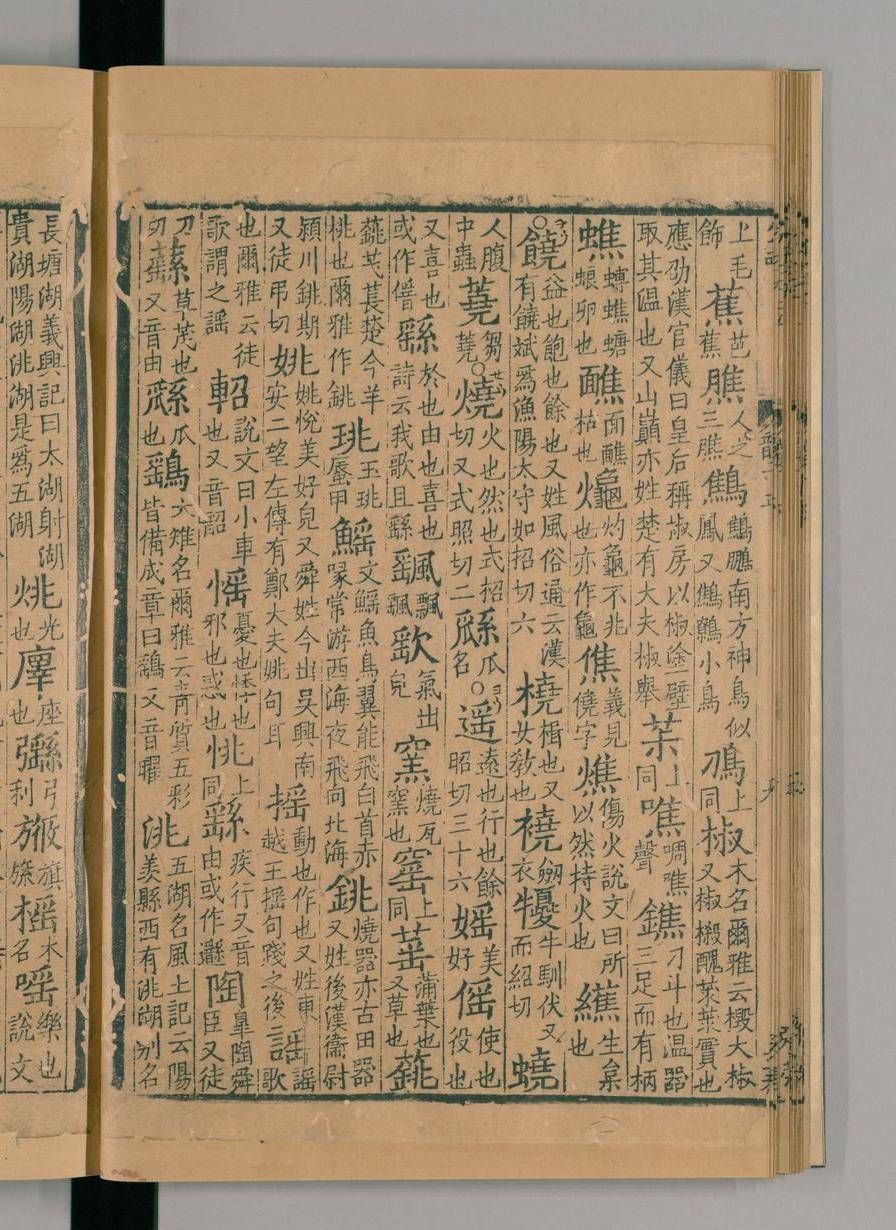 上毛飾蕉芭蕉膲人之三膲鷦鷦䳟南方神鳥似鳳又鷦鷯小鳥上同椒木名爾雅云檓大椒又椒樧醜莍莍實也
應劭漢官儀曰皇后稱椒房以椒塗壁取其溫也又山巔亦姓楚有大夫椒舉茮上同噍啁噍聲鐎刁斗也溫器三足而有柄
蟭蟭螗蜋卵也面枯也灼龜不兆也亦作僬義見僥字燋傷火說文曰所以然持火也生枲也
饒益也飽也餘也又姓風俗通云漢有饒斌爲漁陽太守如招切六橈楫也又女教也襓劒衣犪牛馴伏又而紹切蟯
人腹中蟲蕘芻蕘燒火也然也式招切又式照切二瓜名遥遠也行也餘昭切三十六媱美好傜使也役也
又喜也或作繇於也由也喜也詩云我歌且繇颻飄颻氣出皃窯燒瓦窯也窰上同䔄蒲葉也又草也
芅萇楚今羊桃也爾雅作銚珧玉珧蜃甲鰩文鰩魚鳥翼能飛白首赤喙常游西海夜飛向北海銚燒器亦古田器又姓後漢衛尉
潁川銚期又徒弔切姚姚悅美好皃又舜姓今出吳興南安二望左傳有鄭大夫姚句耳搖動也作也又姓東越王搖句踐之後謡謡歌
也爾雅云徒歌謂之謡軺說文曰小車也又音韶愮憂也悸也邪也惑也恌上同疾行又音由或作陶臯陶舜臣又徒
刀切蘨草茂也又音由瓜也鷂大雉名爾雅云靑質五彩皆備成章曰鷂又音曜洮五湖名風土記云陽羨縣西有洮湖别名
長塘湖義興記曰太湖射湖貴湖陽湖洮湖是爲五湖烑光也座也弓利旗旒榣木名嗂樂也說文